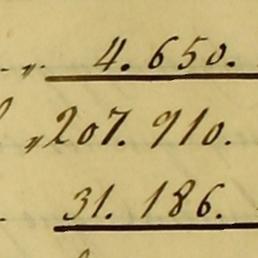 „ 4.650.
„ 207.910.
31.186.